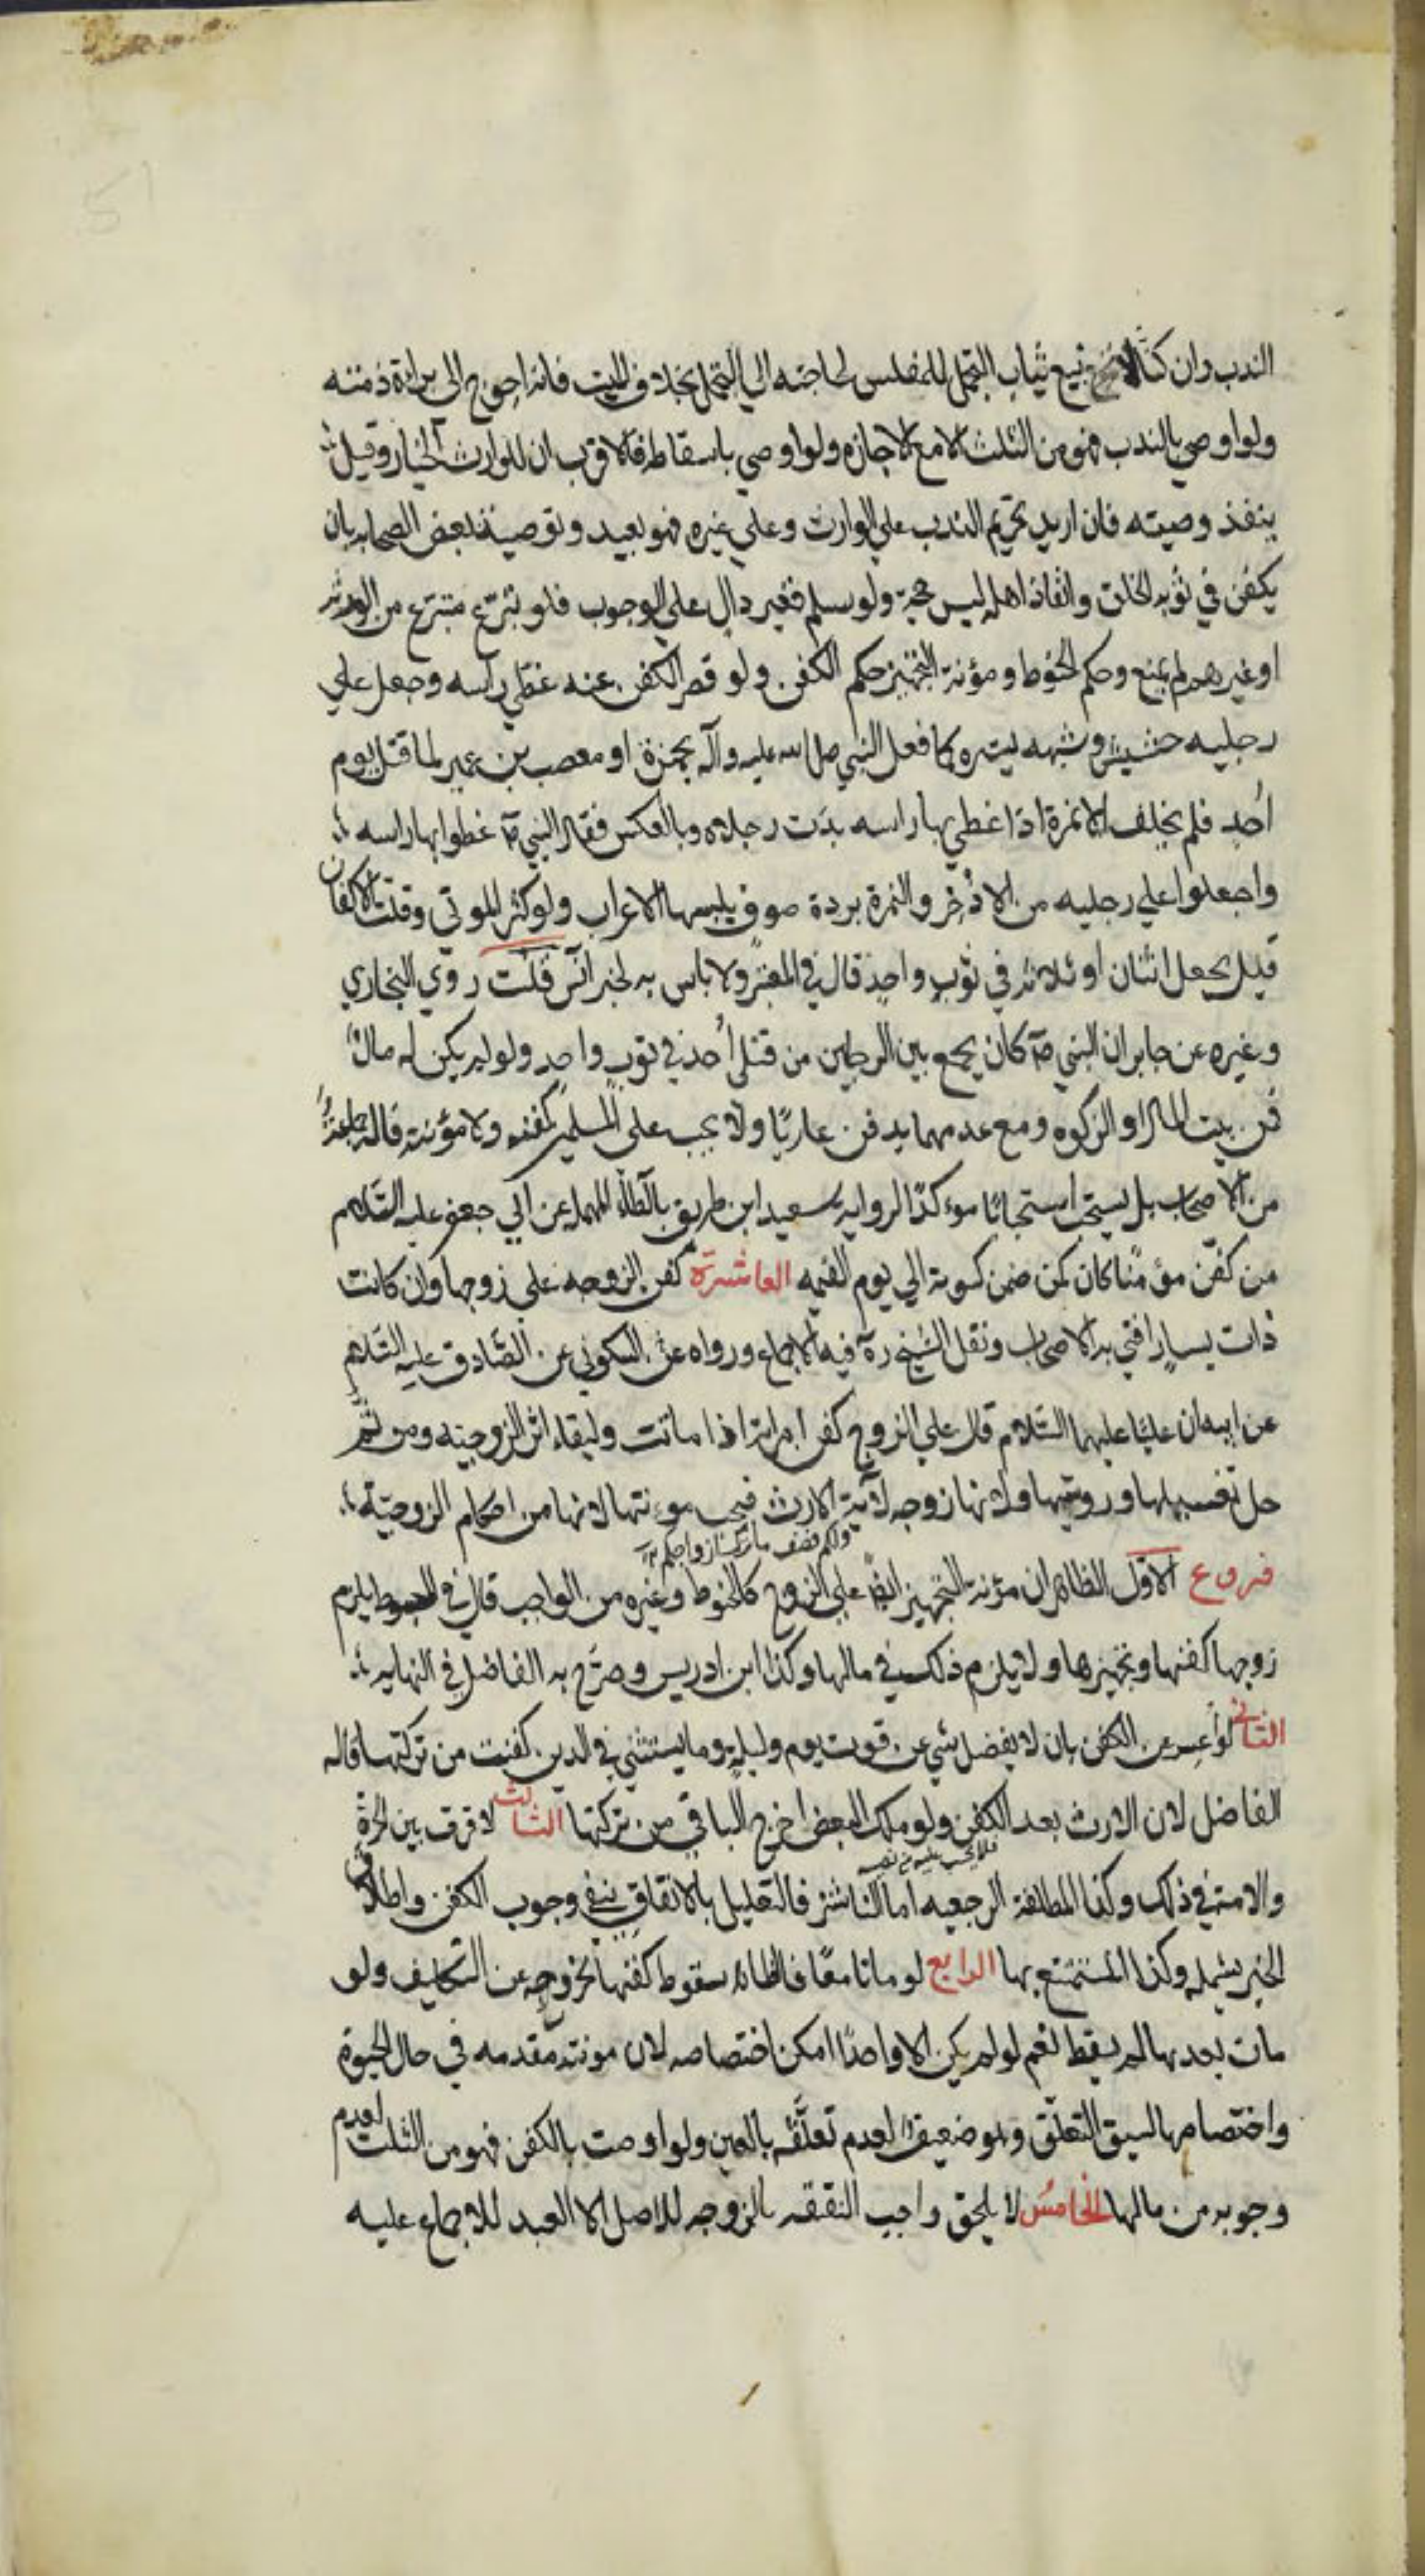 الندب وان كنا لا نبيع ثياب التجمل للمفلس لحاجته الي التجمل بخلاف الميت فانه احوج الى براءة ذمته
ولو اوصي بالندب فهو من الثلث الا مع الاجازه ولو اوصي باسقاطه فالاقرب ان للوارث الخيار وقيل
ينفذ وصيته فان اريد تحريم الندب علي الوارث وعلي غيره فهو بعيد وتوصية بعض الصحابه بان
يكفن في ثوبه الخلق وانفاذ اهله ليس حجة ولو سلم فغير دال علي الوجوب فلو تبرع متبرع من الورثه
او غيرهم لم يمنع وحكم الحنوط ومؤنة التجهيز حكم الكفن ولو قصر الكفن عنه غطي راسه وجعل علي
رجليه حشيش وشبهه ليستره كما فعل النبي صلى الله عليه وآله بحمزة او مصعب بن عمير لما قتل يوم
اُحد فلم يخلف الا نمرة اذا غطي بها راسه بدَت رجلاه وبالعكس فقال النبي ص غطوا بها راسه
واجعلوا علي رجليه من الاذخر والنمرة بردة صوف يلبسها الاعراب ولو كثر الموتي وقلت الاكفان
قيل يجعل اثنان او ثلاثه في ثوب واحد قال في المعتبر ولا باس به لخبر انس قلت روي البخاري
وغيره عن جابر ان النبي ص كان يجمع بين الرجلين من قتلى اُحد في ثوب واحد ولو لم يكن له مال
فمن بيت المال او الزكوه ومع عدمهما يدفن عاريًا ولا يجب على المسلمين كفنه ولا مؤنته قاله جماعة
من الاصحاب بل يستحب استحبابًا موءكدًا لروايه سعيد ابن طريق بالطاء المهمله عن ابي جعفر عليه السّلام
من كفّن مؤمنًا كان كمن ضمن كسوته الي يوم القيمه العاشرة كفن الزوجه علي زوجها وان كانت
ذات يسار افتي به الاصحاب ونقل الشيخ ره فيه الاجماع ورواه عن السكوني عن الصّادق عليه السّلام
عن ابيه ان عليًا عليهما السّلام قال علي الزوج كفن امراته اذا ماتت ولبقاء اثر الزوجيه ومن ثم
حل تغسيلها ورويتها ولانها زوجه لآية الارث فيجب موءنتها لانها من احكام الزوجيّة
ولكم نصف ما ترك ازواجكم
فروع الاوّل الظاهر ان مؤنة التجهيز ايضًا علي الزوج كالحنوط وغيره من الواجب قال في المبسوط يلزم
زوجها كفنها وتجهيزها ولا يلزم ذلك في مالها وكذا ابن ادريس وصرّح به الفاضل في النهايه
الثاني لو اعسر عن الكفن بان لا يفضل شي عن قوت يوم وليلة وما يستثني في الدين كفنت من تركتها قاله
الفاضل لان الارث بعد الكفن ولو ملك البعض اخرج الباقي من تركتها الثالث لا فرق بين الحرة
والامة في ذلك وكذا المطلقة الرجعيه اما الناشز فالتعليل بالانفاق ينفي وجوب الكفن واطلاق
الخبر يشمله وكذا المستمتع بها الرابع لو ماتا معًا فالظاهر سقوط كفنها لخروجه عن التكليف ولو
مات بعدها لم يسقط نعم لو لم يكن الا واحدًا امكن اختصاصه لان مونته مقدمه في حال الحيوة
واختصاصها لسبق التعلّق وهو ضعيف لعدم تعلّقه بالعين ولو اوصت بالكفن فهو من الثلث لعدم
وجوبه من مالها الخامسُ لا يلحق واجب النفقه بالزوجه للاصل الا العبد للاجماع عليه